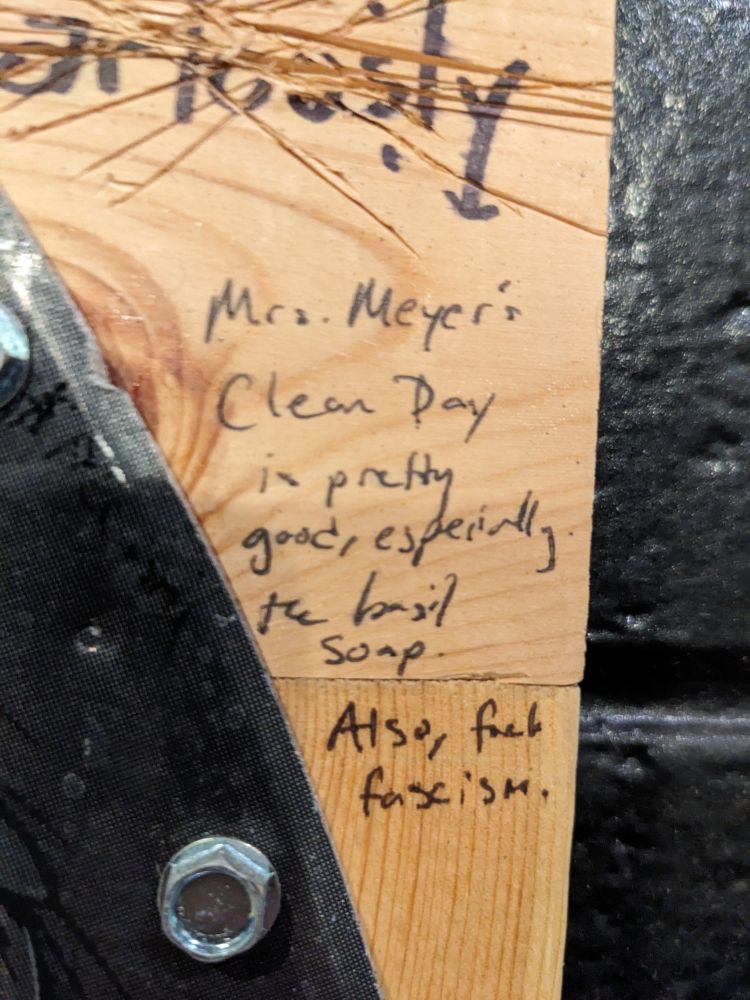 eriously
Mrs. Meyer's
Clean Day
is pretty
good, especially
the basil
soap.
Also, fuck
fascism.